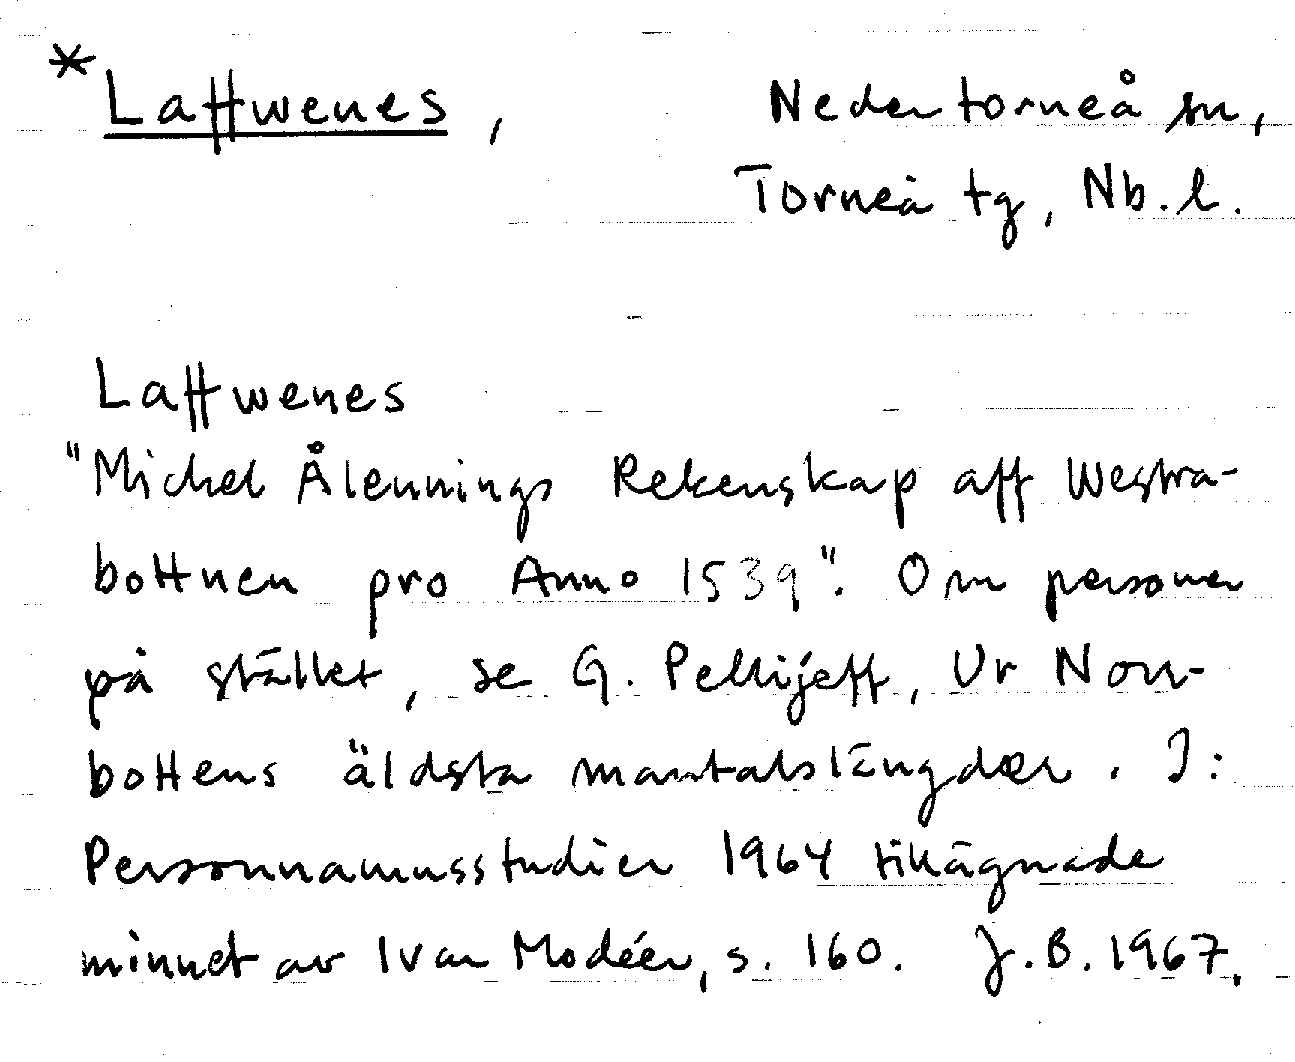 *Laffwenes, Nedertorneå sn,
Torneå tg, Nb.l.
Laffwenes
"Michel Ålennings Rekenskap aff Westra-
bottnen pro Anno 1539". Om personer
på stället, se G. Pellijeff, Ur Norr-
bottens äldsta mantalslängder. I:
Personnamnsstudier 1964 tillägnade
minnet av Ivar Modéer, s. 160. J.B. 1967.